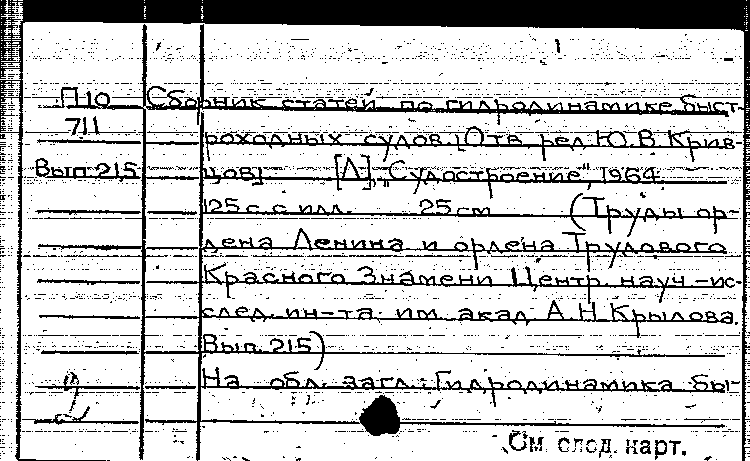 1
П10 Сборник статей по гидродинамике быст-
711 роходных судов. [Отв. ред. Ю. В. Крив-
Вып. 215 цов] [Л], „Судостроение", 1964.
125 с. с илл. 25 см (Труды ор-
дена Ленина и ордена Трудового
Красного Знамени Центр. науч.-ис-
след. ин-та им. акад. А. Н. Крылова.
Вып. 215)
На обл. загл.: Гидродинамика бы-
2
См. след. карт.